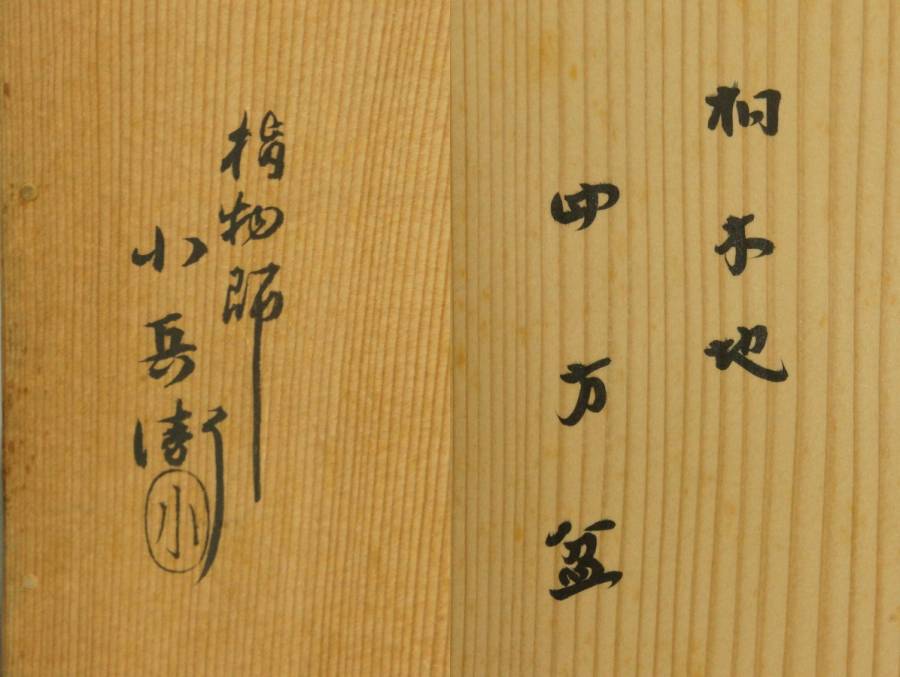 指物師
小兵衛
小
桐木地
四方盆